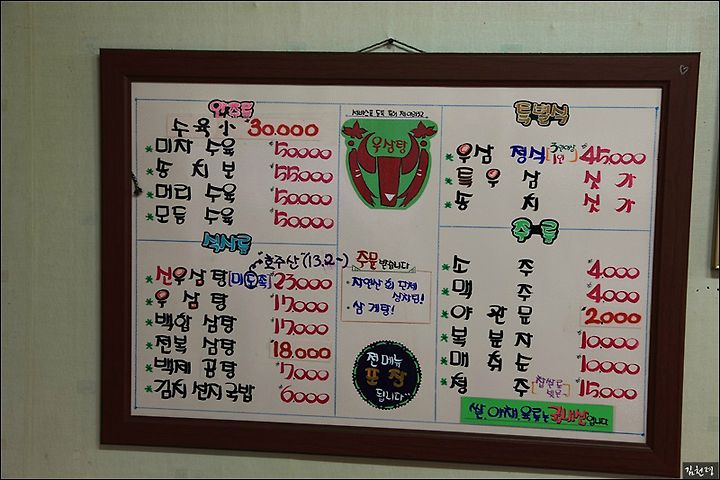 안주류
수육小 30.000
미자 수육 50000
송치보 55000
머리 수육 50000
모듬 수육 50000
식사류
호주산 (13.2~)
신우삼탕 23000
우삼탕 17000
백합 삼탕 17000
전복 삼탕 18.000
백제 곰탕 7.000
김치 선지국밥 6000
우삼탕
주문 받습니다
자연산 회 단체
삼계탕!
전메뉴
포장
됩니다
특별식
우삼 정식 45000
특우삼 싯가
송치 싯가
주류
소주 4.000
맥주 4.000
야관문 2.000
복분자 10000
매취순 10000
청주 15000
쌀.야채 육류는 국내산입니다
김천령